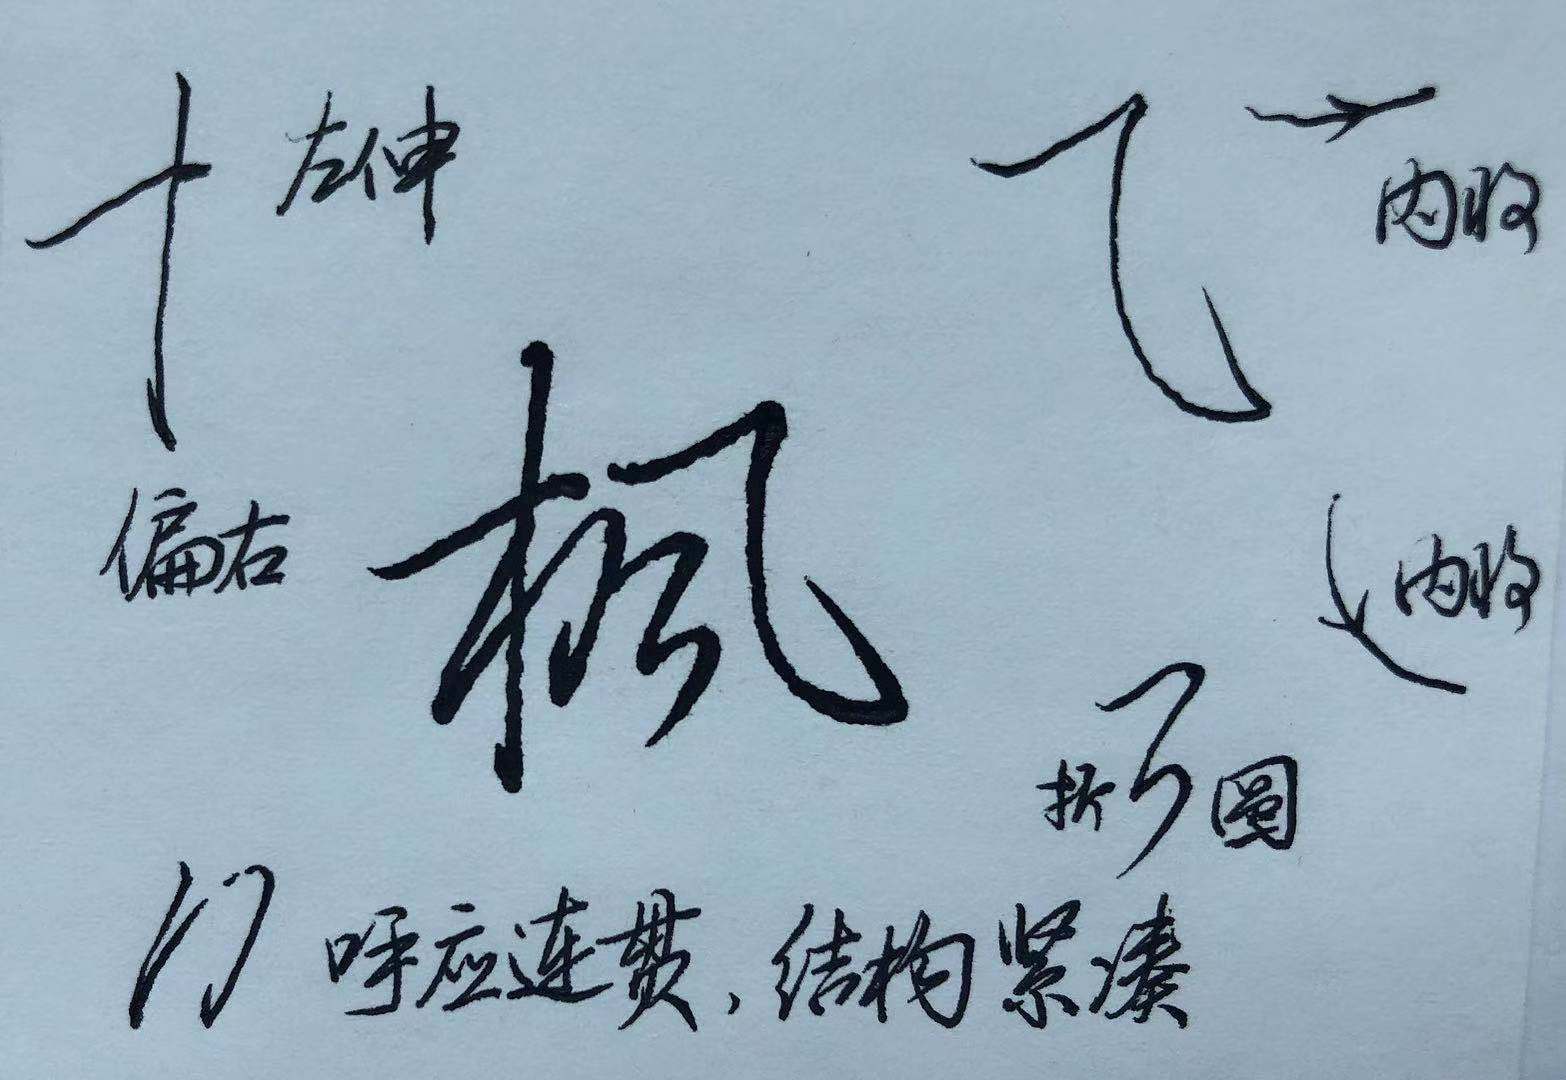 左伸
内收
偏右
枫
内收
折圆
呼应连贯，结构紧凑